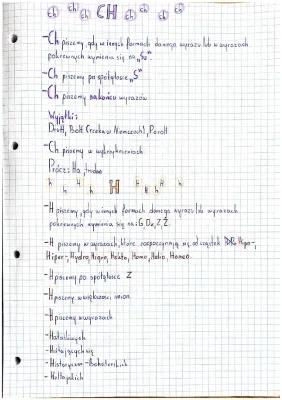 ch ch ch CH ch ch ch ch
-Ch piszemy, gdy w innych formach danego wyrazu lub w wyrazach
pokrewnych wymienia się na „Sz”
-Ch piszemy po spółgłosce „S”
-Ch piszemy na końcu wyrazów
Wyjątki:
Druh, Boh (rzeka w Niemczech),
-Ch piszemy w wykrzyknieniach
Prócz: Ha,
h h H h H H H h h
-H piszemy, gdy w innych formach danego wyrazu lub w wyrazach
pokrewnych wymienia się na: G, Dz, Z, Ż.
-H piszemy w wyrazach, które rozpoczynają się od cząstek Hipo-,
Hiper-, Hydro, Higro, Hekto, Hemo, Helio, Homeo.
-H piszemy po spółgłosce Z
-H piszemy w większości imion
-H piszemy w wyrazach
-Hałaśliwych
-Hulających się
-Historyczno-Bohaterskich